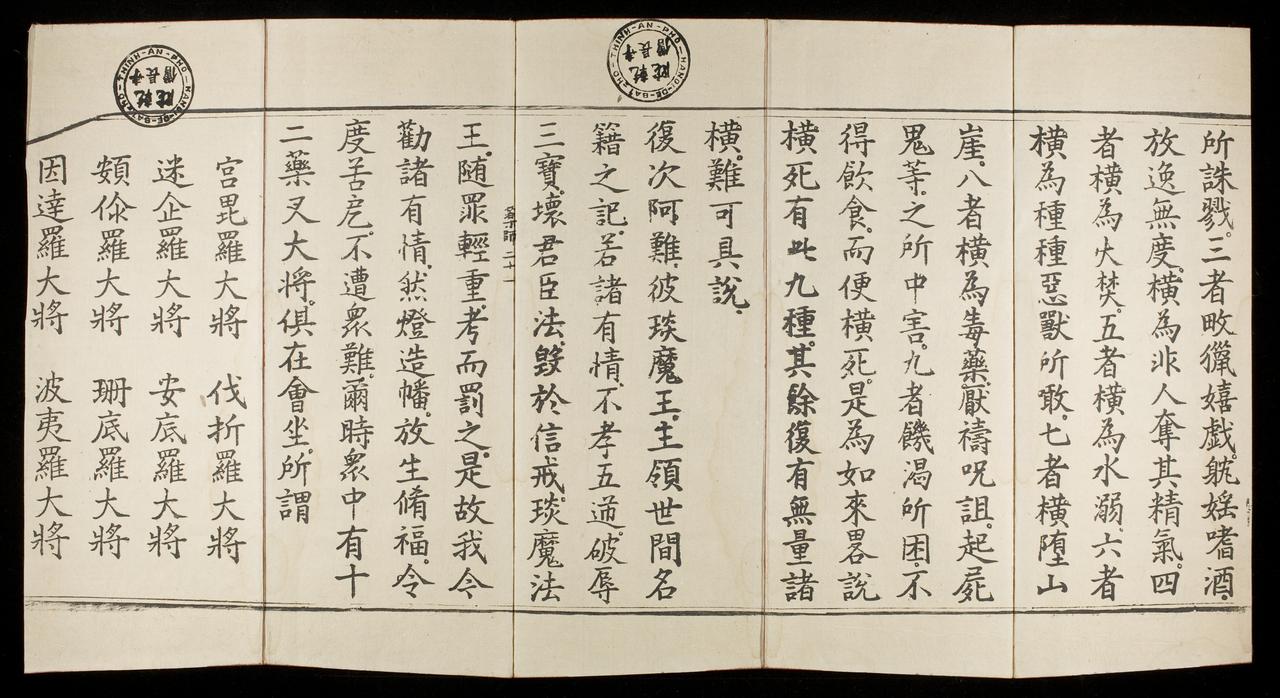 所誅戮。三者畋獵嬉戲。躭婬嗜酒。
放逸無度。橫為非人奪其精氣。四
者橫為火焚。五者橫為水溺。六者
橫為種種惡獸所噉。七者橫墮山
崖。八者橫為毒藥。厭禱咒詛。起屍
鬼等。之所中害。九者饑渴所困。不
得飲食。而便橫死。是為如來畧說
橫死有此九種。其餘復有無量諸
橫。難可具說。
復次阿難。彼琰魔王。主領世間名
籍之記。若諸有情。不孝五逆。破辱
三寶。壞君臣法。毀於信戒。琰魔法
藥師 二十一
王。随罪輕重。考而罰之。是故我今
勸諸有情。然燈造幡。放生脩福。令
度苦厄。不遭衆難。爾時衆中有十
二藥叉大將。俱在會坐。所謂
宮毘羅大將 伐折羅大將
迷企羅大將 安底羅大將
頞你羅大將 珊底羅大將
因達羅大將 波夷羅大將
THINH-AN-PHO-HANOI-DE-BAT-PHO
乾
僧長寺
THINH-AN-PHO-HANOI-DE-BAT-PHO
乾
僧長寺